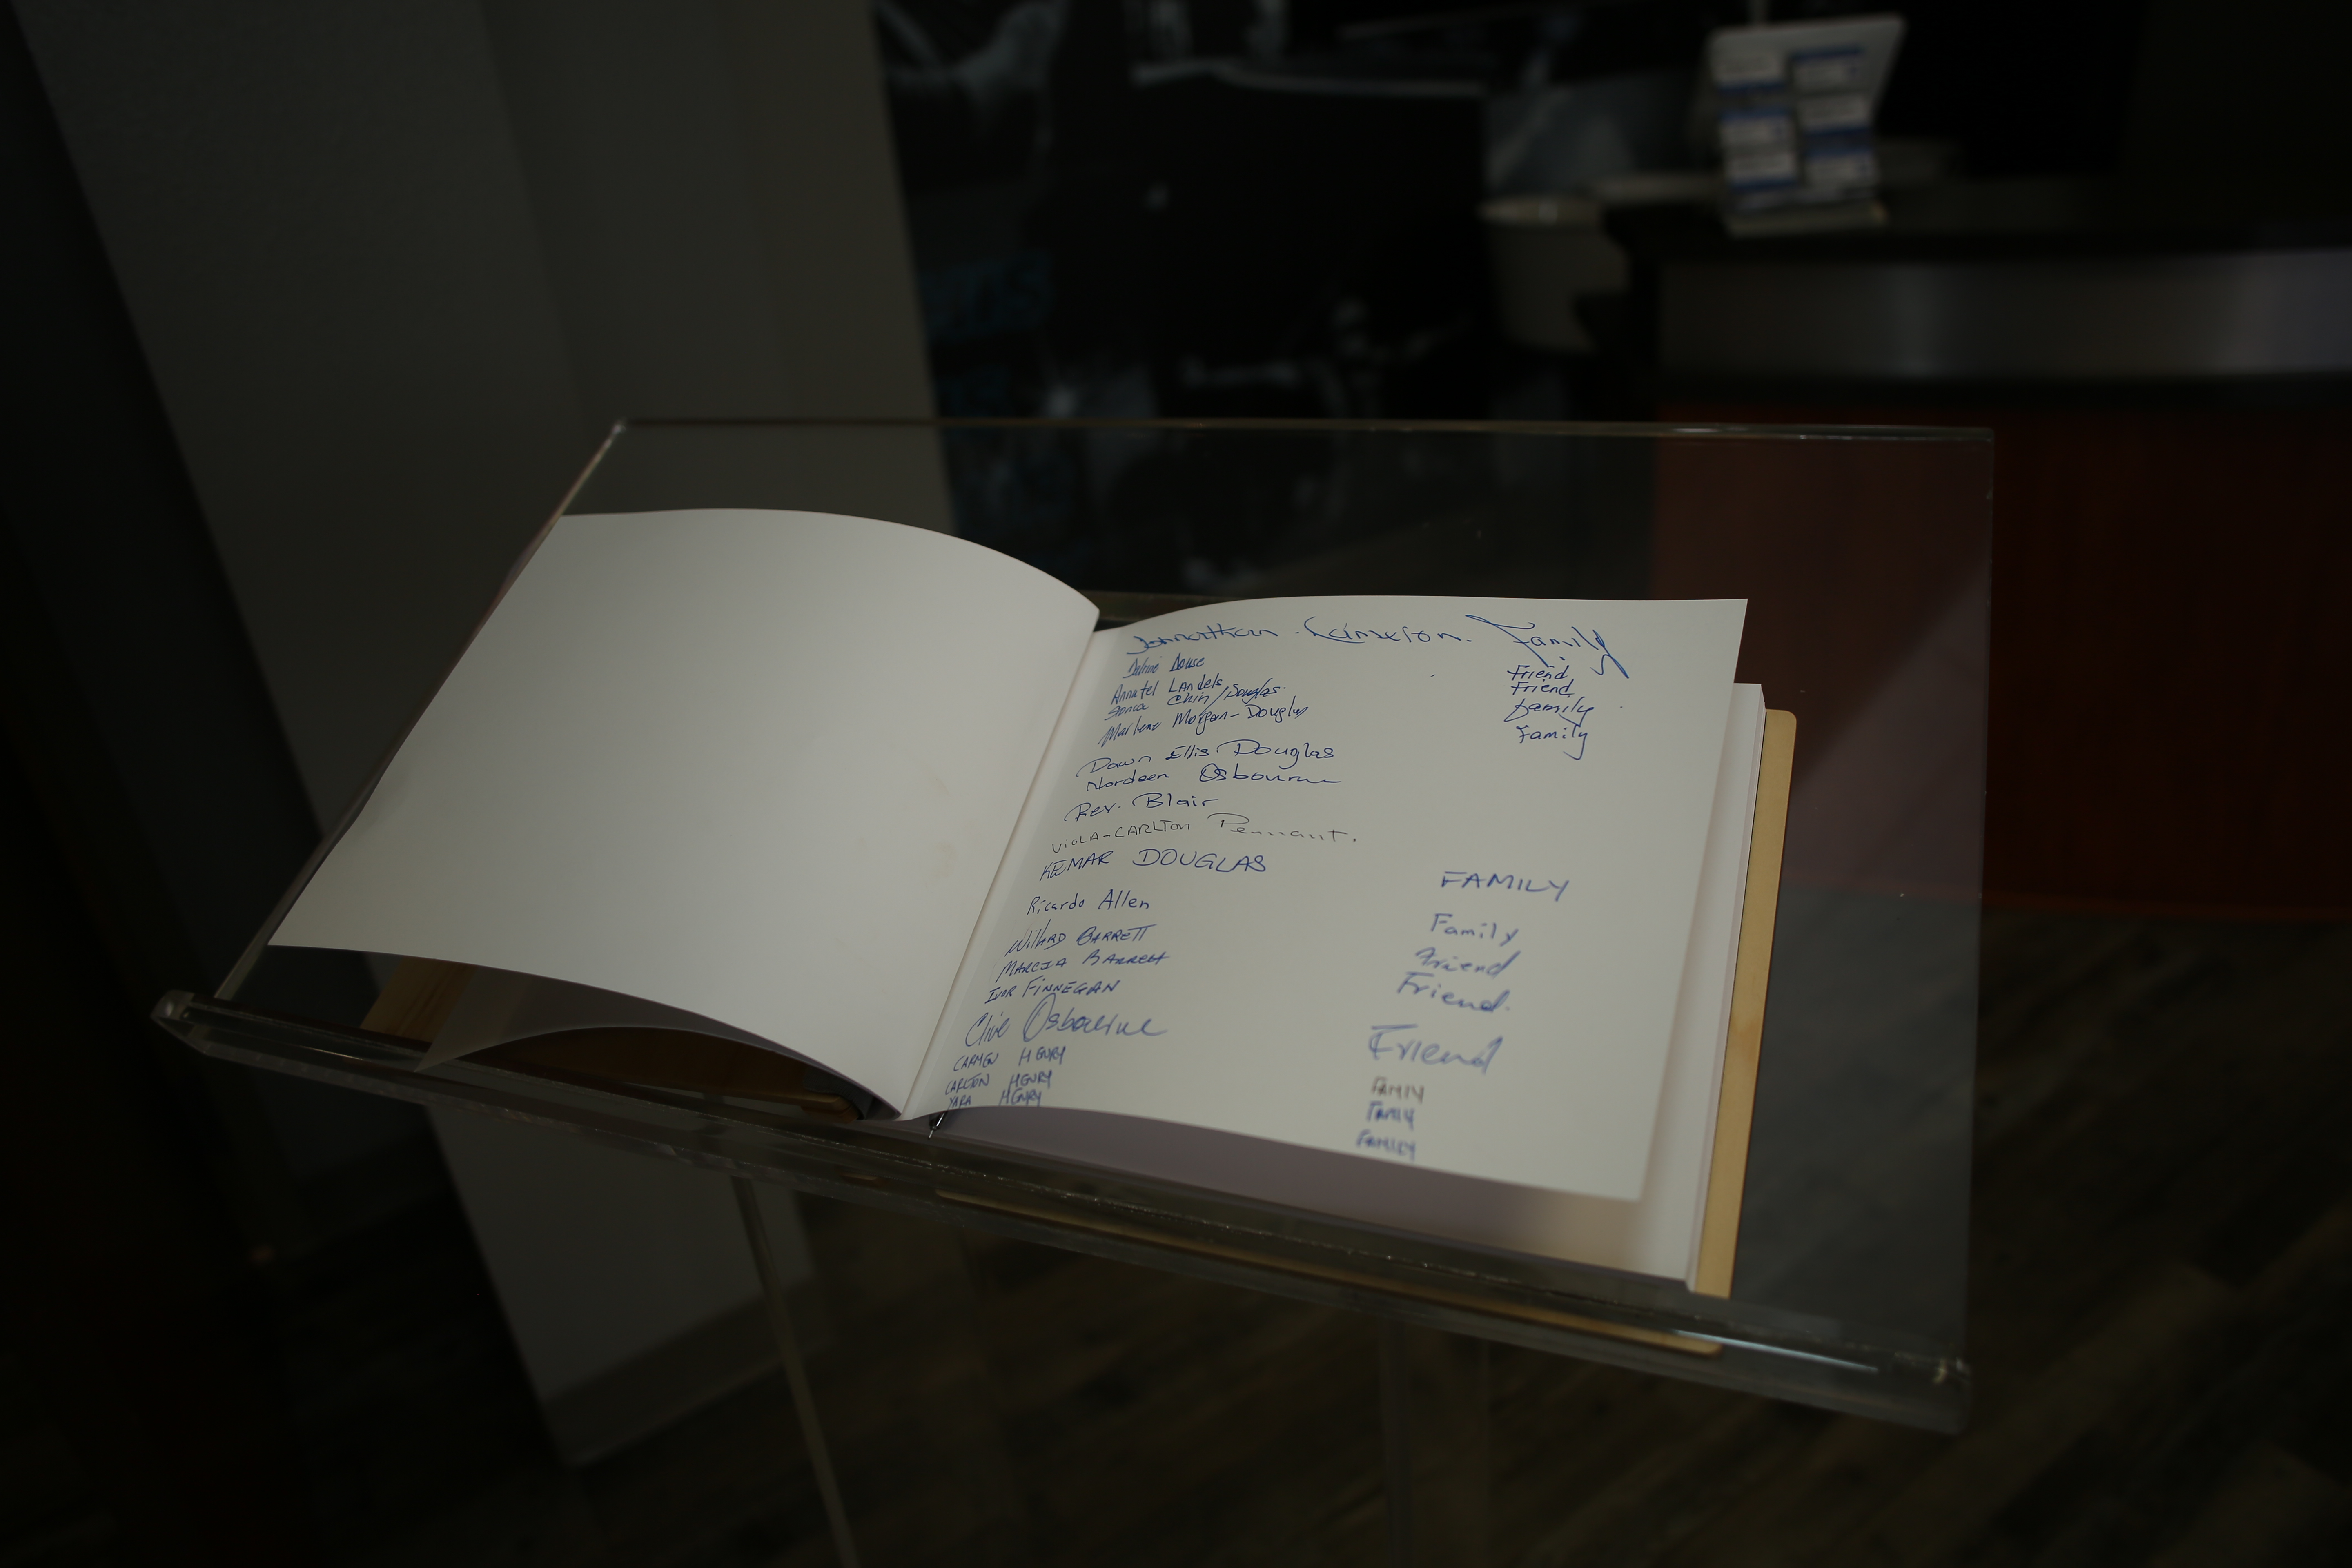 Johnathan Cameron. Family
Delrine Douse Friend
Annatel Landels Friend
Sonia Chin/Douglas. family
Marlene Morgan-Douglas Family
Dawn Ellis Douglas
Nordeen Osbourne
Rev. Blair
VIOLA-CARLTON Pennant.
KEMAR DOUGLAS FAMILY
Ricardo Allen Family
Willard BARRETT Friend
MARCIA BARRETT Friend.
IVOR FINNEGAN
Clive Osbourne Friend
CARMEN HENRY FAMILY
CARLTON HENRY FAMILY
YARA HENRY FAMILY